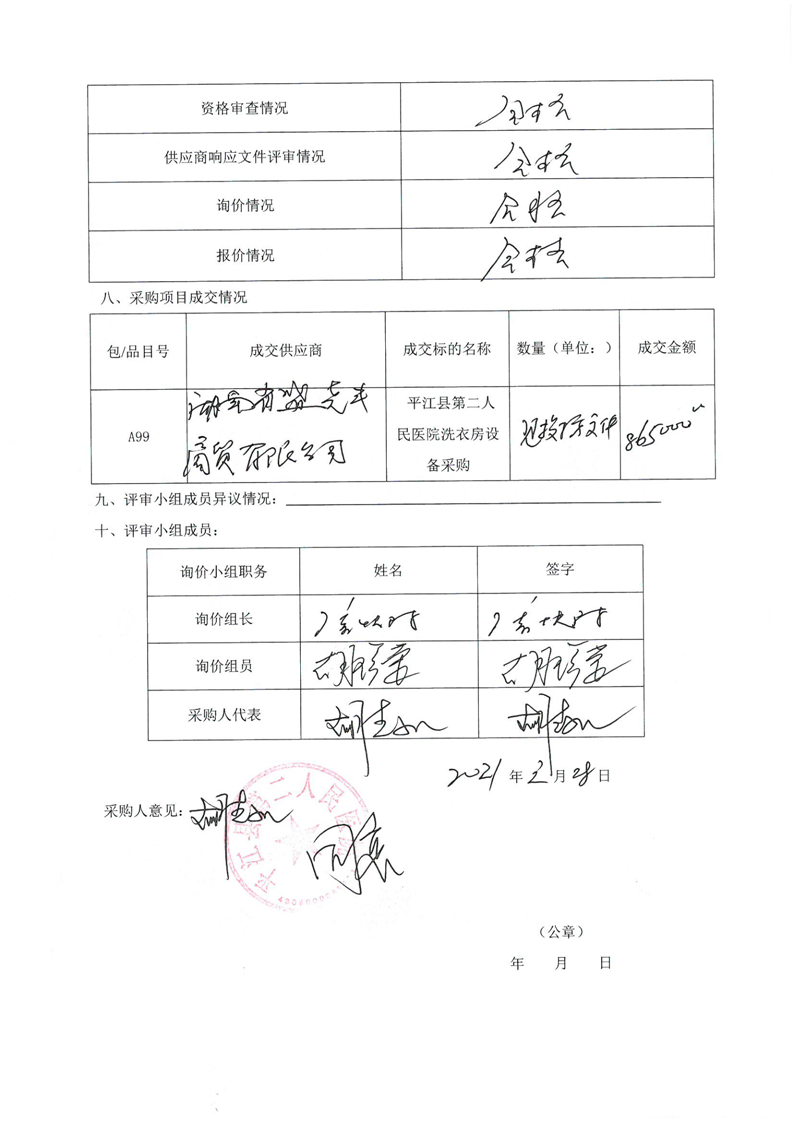 资格审查情况 合格
供应商响应文件评审情况 合格
询价情况 合格
报价情况 合格
八、采购项目成交情况
包/品目号 成交供应商 成交标的名称 数量(单位:) 成交金额
A99 商贸有限公司 平江县第二人民医院洗衣房设备采购 见投标文件 865000
九、评审小组成员异议情况:
十、评审小组成员:
询价小组职务 姓名 签字
询价组长
询价组员
采购人代表
2021年 月28日
采购人意见: 同意
平江县第二人民医院
(公章)
年 月 日